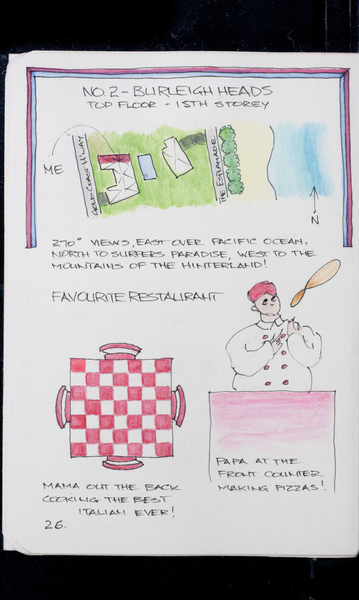 NO. 2 - BURLEIGH HEADS
TOP FLOOR - 15TH STOREY
ME
GOLD COAST H'WAY
THE ESPLANADE
N
270° VIEWS, EAST OVER PACIFIC OCEAN,
NORTH TO SURFERS PARADISE, WEST TO THE
MOUNTAINS OF THE HINTERLAND!
FAVOURITE RESTAURANT
PAPA AT THE
FRONT COUNTER
MAKING PIZZAS!
MAMA OUT THE BACK
COOKING THE BEST
ITALIAN EVER!
26.